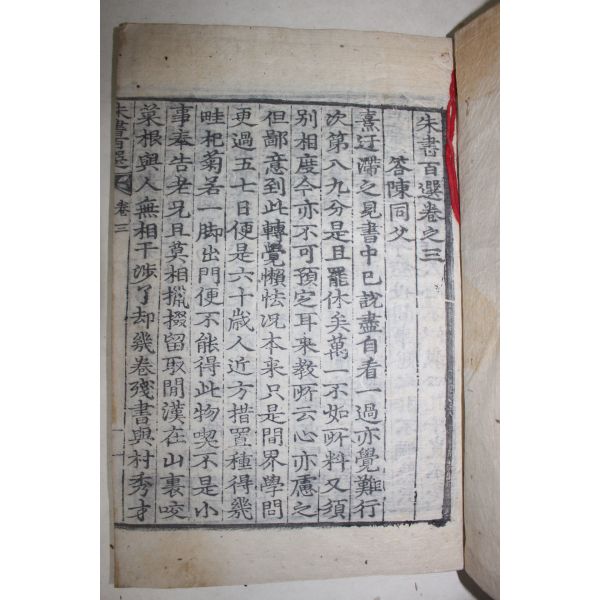 朱書百選卷之三
答陳同父
熹迂滯之見書中已說盡自看一過亦覺難行
次第八九分是且罷休矣萬一不如所料又須
別相度今亦不可預定耳來教所云心亦慮之
但鄙意到此轉覺懶怯况本來只是間界學問
更過五七日便是六十歲人近方措置種得幾
畦杞菊若一脚出門便不能得此物喫不是小
事奉告老兄且莫相攛掇留取閒漢在山裏咬
菜根與人無相干涉了却幾卷殘書與村秀才
朱書百選
卷三
一